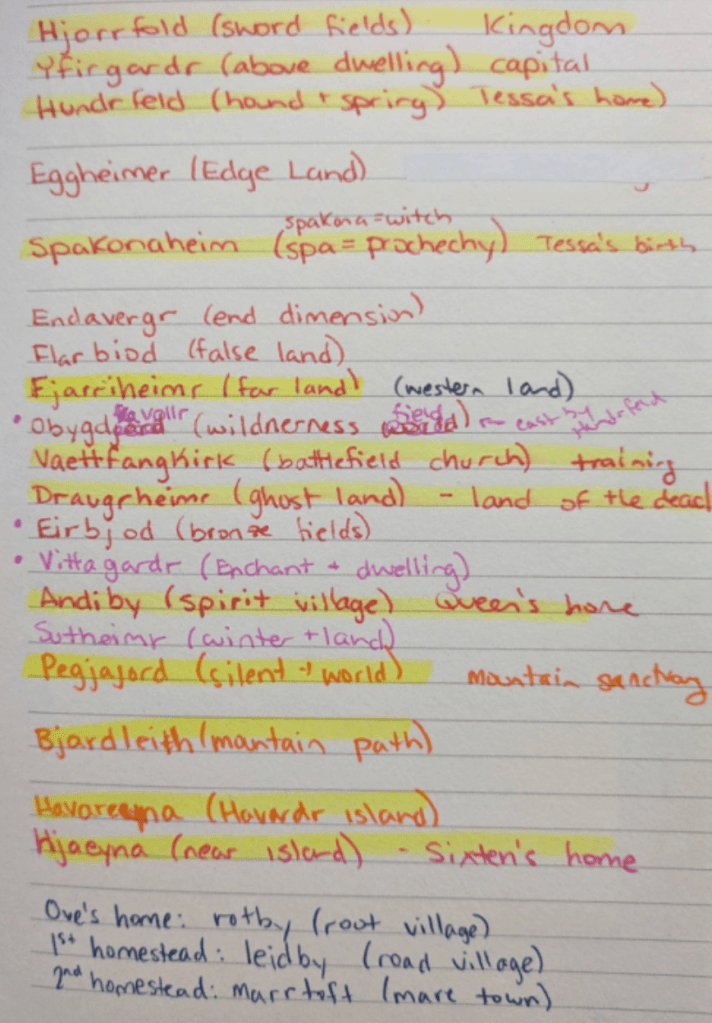 Hjorrfold (sword fields) Kingdom
Yfirgardr (above dwelling) capital
Hundrfeld (hound + spring) Tessa's home)
Eggheimer (Edge Land)
spakona = witch
Spakonaheim (spa = prochechy) Tessa's birth
Endavergr (end dimension)
Flarbiod (false land)
Fjarriheimr (far land) (western land)
vollr field
• Obygd (wildnerness) east by Hundrfeld
Vaettfangkirk (battlefield church) training
Draugrheimr (ghost land) - land of the dead
• Eirbjod (bronze fields)
• Vittagardr (Enchant + dwelling)
Andiby (spirit village) Queen's home
Sutheimr (winter + land)
Pegjajord (silent + world) mountain sanctuary
Bjardleith (mantain path)
(Havardr island)
Hjaeyna (near island) - Sixten's home
Ove's home: rotby (root village)
1st homestead: leidby (road village)
2nd homestead: marrtoft (mare town)